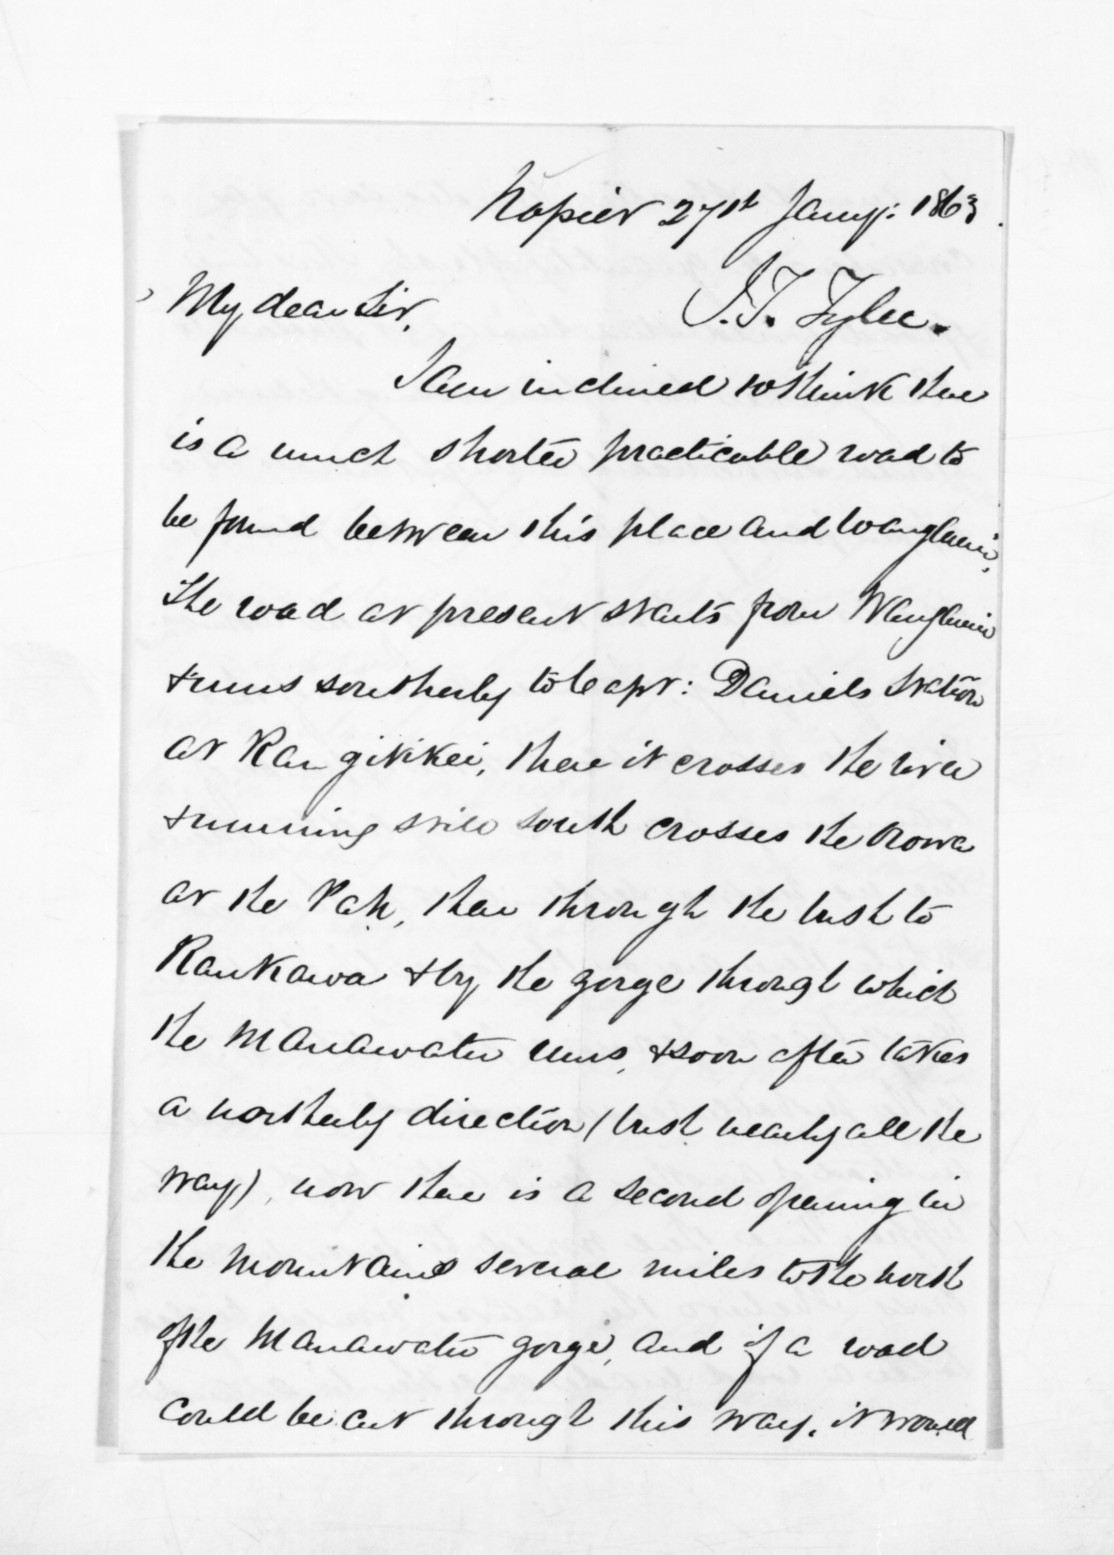 Napier 27th Jany: 1863
J. T. Tylee.
My dear Sir,
I am inclined to think there
is a much shorter practicable road to
be found between this place and Wanganui,
the road at present starts from Wanganui
& runs southerly to Capt: Daniels Station
at Rangitikei, there it crosses the river
& running still south crosses the Orowa
at the Pah, then through the bush to
Raukawa & by the gorge through which
the Manawatu runs, & soon after takes
a northerly direction (bush nearly all the
way), now there is a second opening in
the mountains several miles to the north
of the Manawatu gorge, and if a road
could be cut through this way, it would